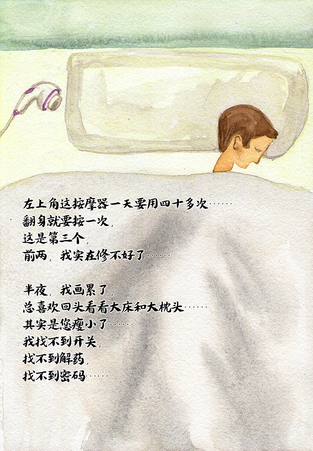 左上角这按摩器一天要用四十多次……
翻身就要按一次,
这是第三个,
前两,我实在修不好了……
半夜,我画累了
总喜欢回头看看大床和大枕头……
其实是您瘦小了……
我找不到开关,
找不到解药,
找不到密码……